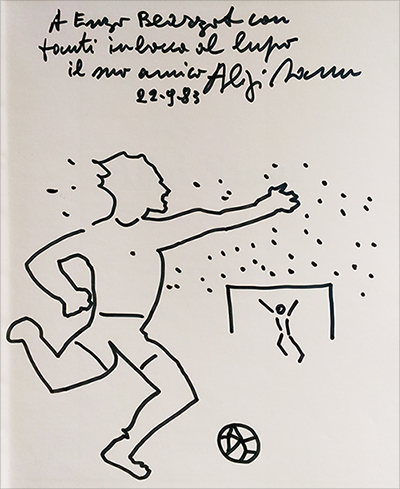 A Enzo Bearzot con
tanti in bocca al lupo
il suo amico Aligi Sassu
22-9-83